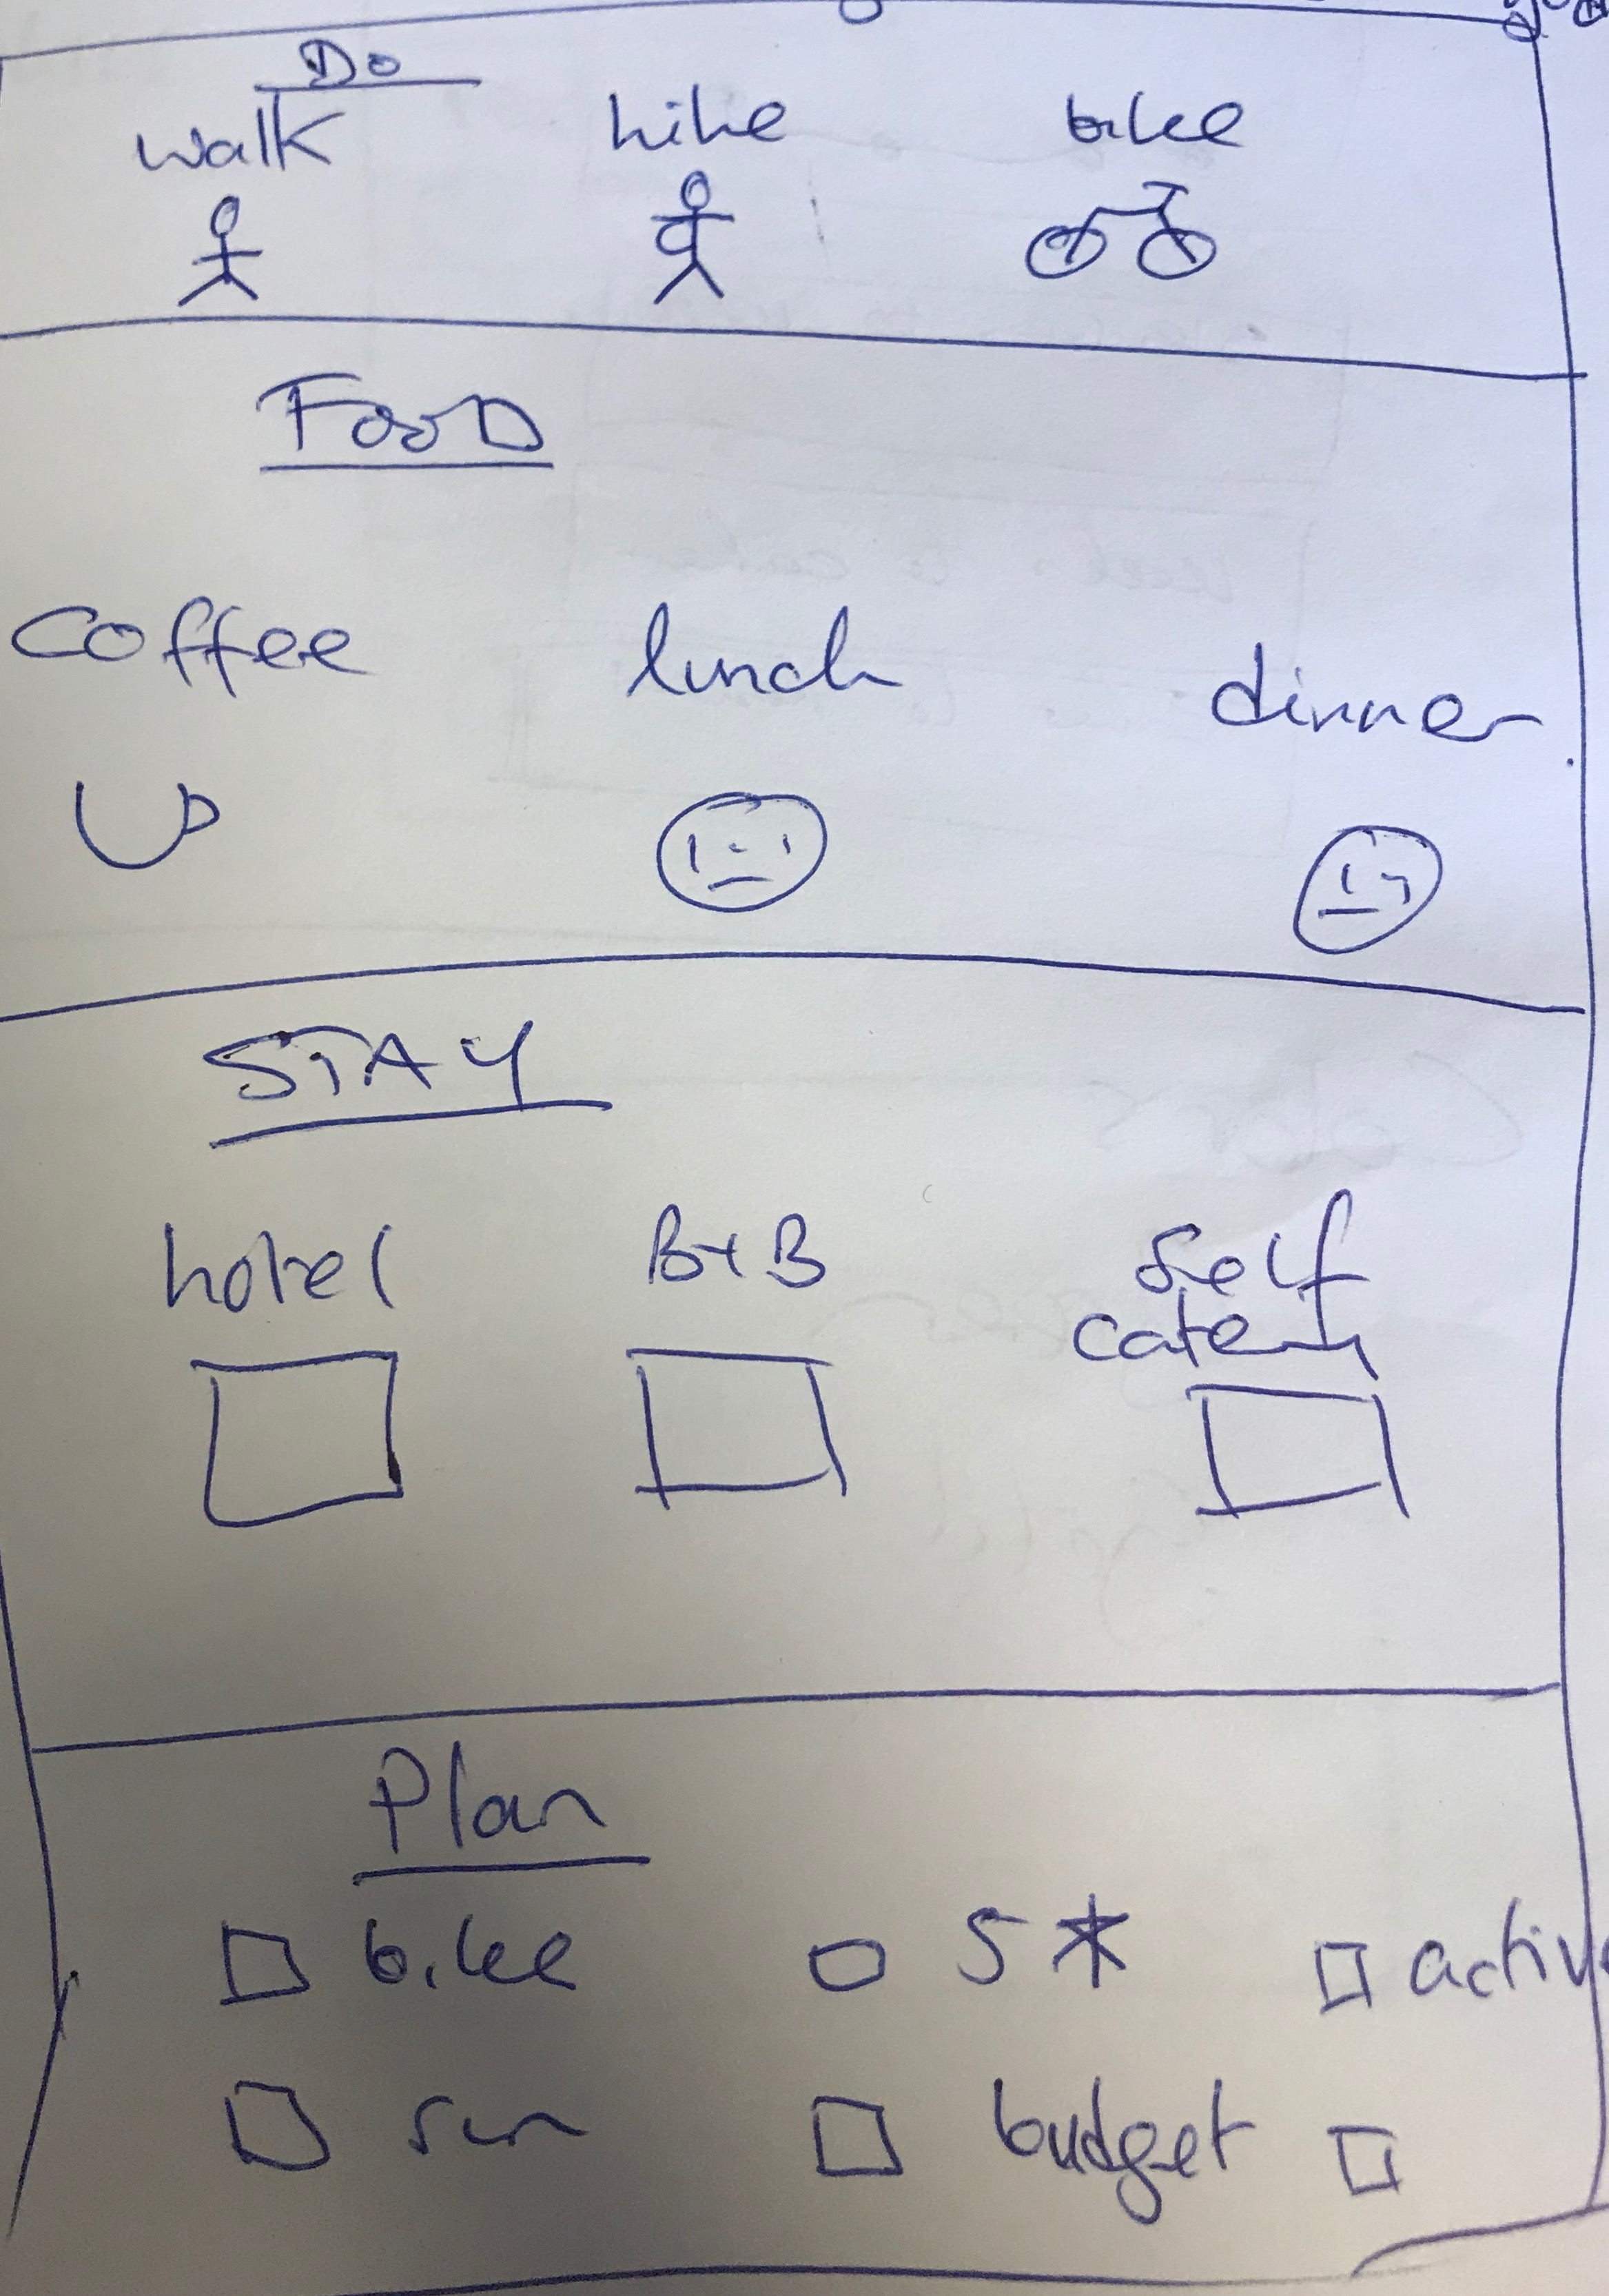 Do
walk hike bike
FOOD
coffee lunch dinner
STAY
hotel B+B self
Plan
bike 5* active
sun budget